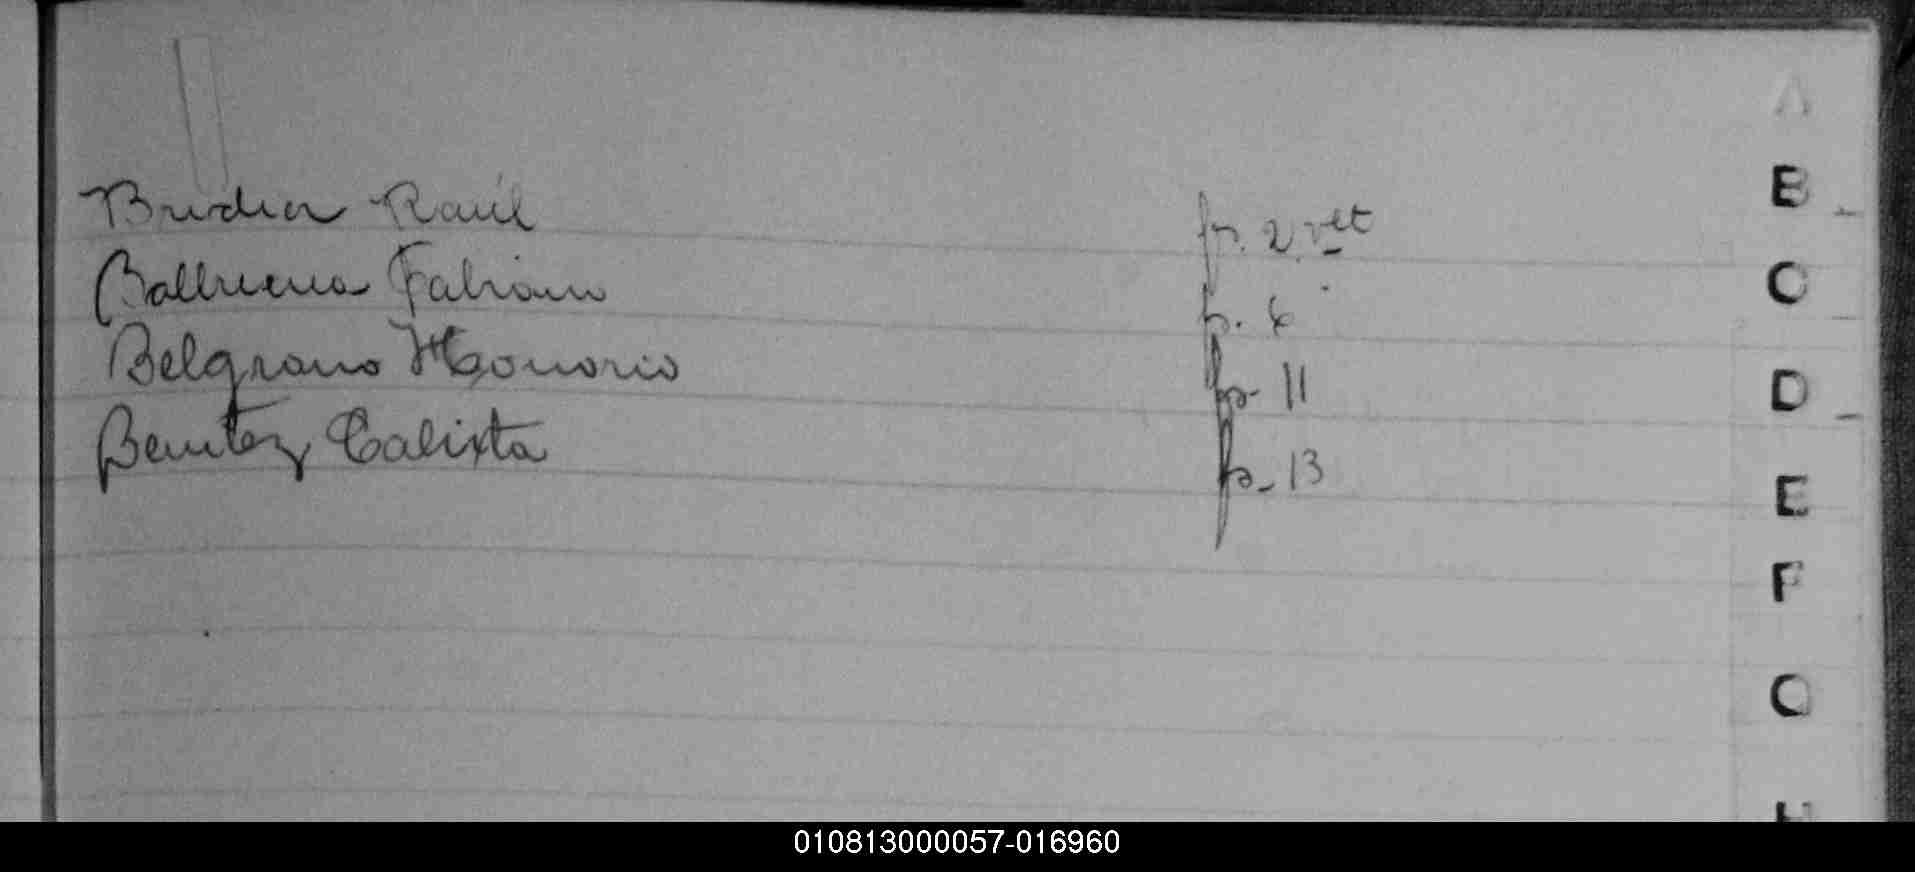 Raúl fs. 2 vlt
Fabiano fs. 6
Belgrano Honorio fs. 11
Benitez Calixta fs. 13
A
B
C
D
E
F
G
H
010813000057-016960